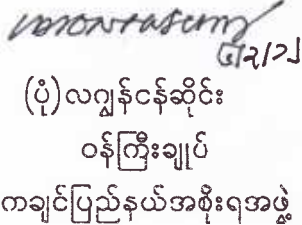 (ပုံ)လဂျွန်ငန်ဆိုင်း
ဝန်ကြီးချုပ်
ကချင်ပြည်နယ်အစိုးရအဖွဲ့